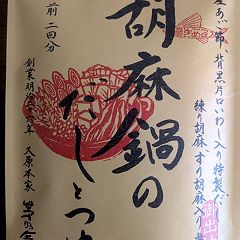 産あご節、背黒片口いわし入り特製だ
練り胡麻、すり胡麻入り
胡麻鍋の
だしとつゆ
前 二回分
創業明治二十六年 久原本家 茅の舎